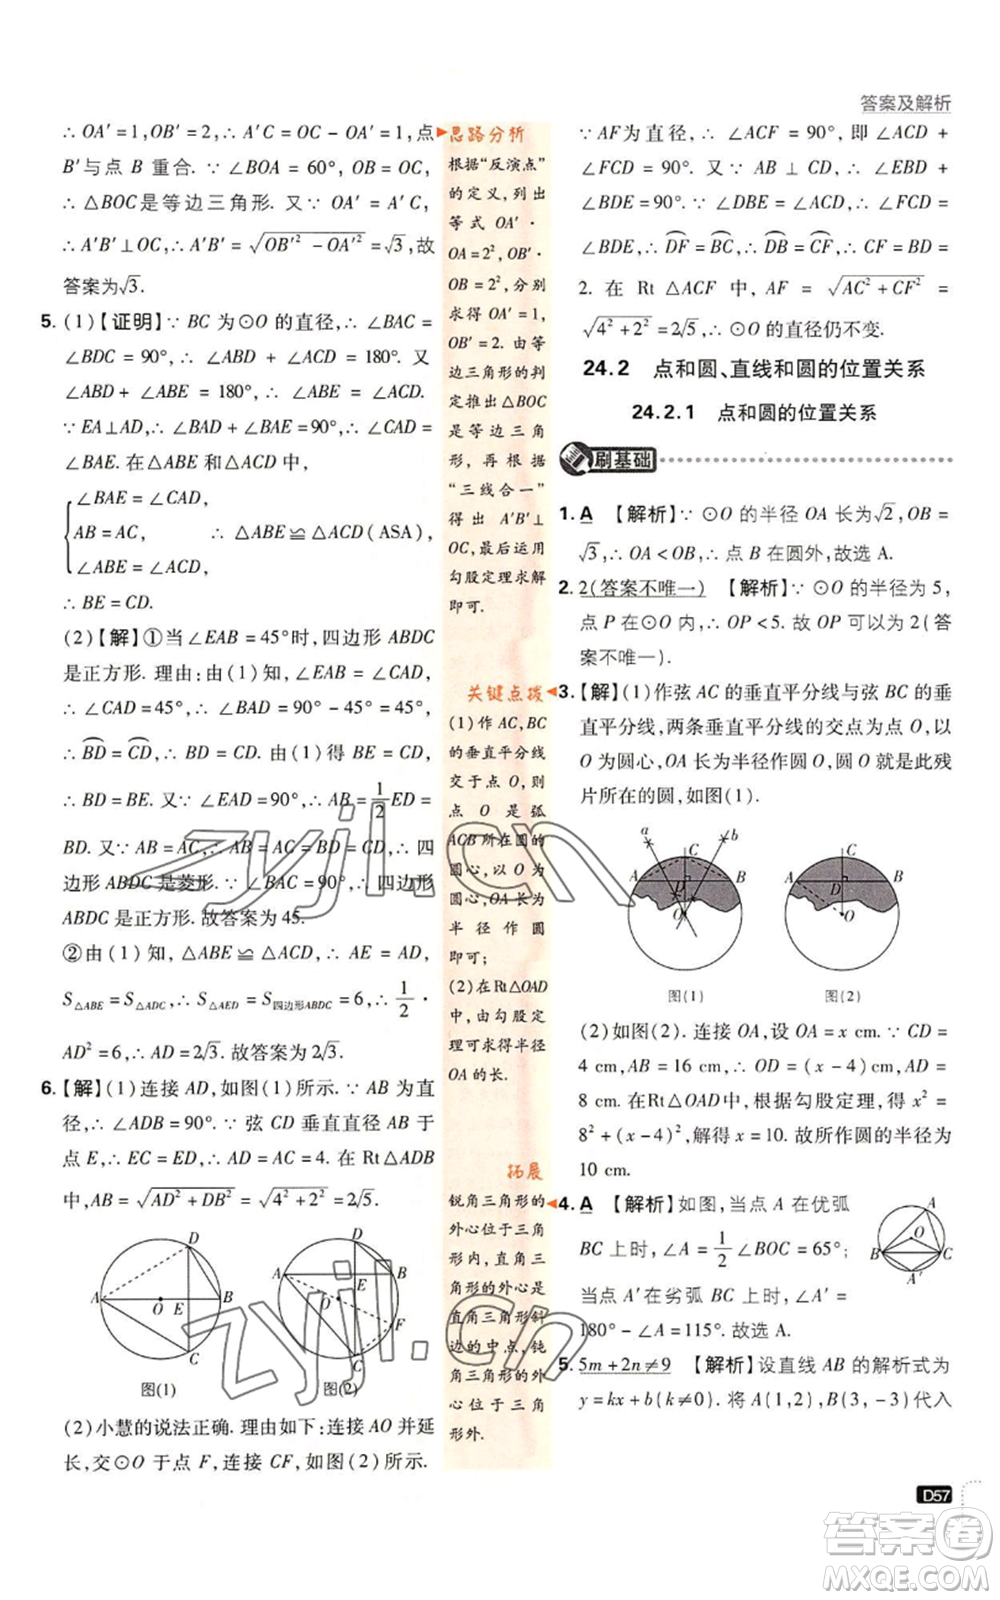 答案及解析
∴ OA′=1,OB′=2,∴ A′C=OC-OA′=1,点
B′与点 B 重合. ∵ ∠BOA=60°,OB=OC,
∴ △BOC是等边三角形. 又∵ OA′=A′C,
∴ A′B′⊥OC,∴ A′B′=√(OB′²-OA′²)=√3,故
答案为√3.
5. (1)【证明】∵ BC 为⊙O 的直径,∴ ∠BAC=
∠BDC=90°,∴ ∠ABD+∠ACD=180°. 又
∵ ∠ABD+∠ABE=180°,∴ ∠ABE=∠ACD.
∵ EA⊥AD,∴ ∠BAC=∠EAD=90°,∴ ∠CAD=
∠BAE. 在△ABE 和△ACD 中,
∠BAE=∠CAD,
AB=AC, ∴ △ABE≌△ACD(ASA),
∠ABE=∠ACD,
∴ BE=CD.
(2)【解】①当∠EAB=45°时,四边形 ABDC
是正方形. 理由:由(1)知∠EAB=∠CAD,
∴ ∠CAD=45°,∴ ∠BAD=∠CAD=45°,
∴ BD=CD,∴ BD=CD. 由(1)得 BE=CD,
∴ BD=BE. 又∵ ∠EAD=90°,∴ AB=1/2ED=
BD. 又∵ AB=AC,∴ AB=AC=CD=BD,∴ 四
边形 ABDC 是菱形. ∵ ∠BAC=90°,∴ 四边形
ABDC 是正方形. 故答案为 45.
②由(1)知,△ABE≌△ACD,∴ AE=AD,
S△ABE=S△ACD,∴ S△AED=S四边形ABDC=6,∴ 1/2·
AD²=6,∴ AD=2√3. 故答案为 2√3.
6.【解】(1)连接 AD,如图(1)所示. ∵ AB 为直
径,∴ ∠ADB=90°. ∵ 弦 CD 垂直直径 AB 于
点 E,∴ BD=BC=2,∴ AD=AC=4. 在 Rt△ADB
中,AB=√(AD²+DB²)=√(4²+2²)=2√5.
D
A O E B
C
图(1)
D
A B
E
O
F
C
图(2)
(2)小慧的说法正确. 理由如下:连接 AO 并延
长,交⊙O 于点 F,连接 CF,如图(2)所示.
思路分析
根据“反演点”
的定义,列出
等式 OA′·
OA=2²,OB′·
OB=2²,分别
求得 OA′=1,
OB′=2. 由等
边三角形的判
定推出△BOC
是等边三角
形,再根据
“三线合一”
得出 A′B′⊥
OC,最后运用
勾股定理求解
即可.
关键点拨
(1)作 AC,BC
的垂直平分线
交于点 O,则
点 O 是弧
ACB所在圆的
圆心,以 O 为
圆心,OA 长为
半径作圆
即可;
(2)在Rt△OAD
中,由勾股定
理可求得半径
OA 的长.
拓展
锐角三角形的
外心位于三角
形内,直角三
角形的外心是
直角三角形斜
边的中点,钝
角三角形的外
心位于三角
形外.
∵ AF为直径,∴ ∠ACF=90°,即∠ACD+
∠FCD=90°. 又∵ AB⊥CD,∴ ∠ABD+
∠BDE=90°. ∵ ∠ABD=∠ACD,∴ ∠FCD=
∠BDE,∴ DF=BC,∴ DB=CF,∴ CF=BD=
2. 在 Rt△ACF 中,AF=√(AC²+CF²)=
√(4²+2²)=2√5,∴ ⊙O 的直径仍不变.
24.2 点和圆、直线和圆的位置关系
24.2.1 点和圆的位置关系
刷基础
1. A 【解析】∵ ⊙O 的半径 OA 长为√2,OB=
√3,∴ OA<OB,∴ 点 B 在圆外,故选 A.
2. 2(答案不唯一) 【解析】∵ ⊙O 的半径为 5,
点 P 在⊙O 内,∴ OP<5. 故 OP 可以为 2(答
案不唯一).
3.【解】(1)作弦 AC 的垂直平分线与弦 BC 的垂
直平分线,两条垂直平分线的交点为点 O,以
O 为圆心,OA 长为半径作圆 O,圆 O 就是此残
片所在的圆,如图(1).
a b
C
A D B
O
图(1)
C
A D B
O
图(2)
(2)如图(2). 连接 OA,设 OA=x cm. ∵ CD=
4 cm,AB=16 cm,∴ OD=(x-4)cm,AD=
8 cm. 在Rt△OAD 中,根据勾股定理,得 x²=
8²+(x-4)²,解得 x=10. 故所作圆的半径为
10 cm.
4. A 【解析】如图,当点 A 在优弧
BC 上时,∠A=1/2∠BOC=65°;
当点 A′在劣弧 BC 上时,∠A′=
180°-∠A=115°. 故选 A.
A
O
B C
A′
5. 5m+2n≠9 【解析】设直线 AB 的解析式为
y=kx+b(k≠0). 将 A(1,2),B(3,-3)代入
D57
zyjl.cn
zyjl.cn
答案卷
MXQE.COM